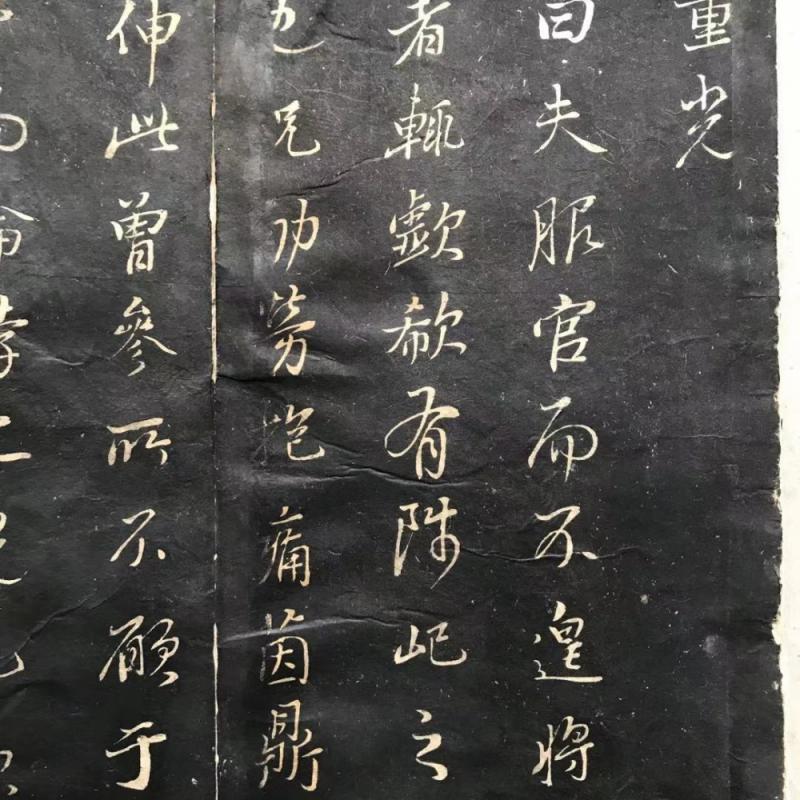 重光
曰夫服官而不遑將
者輒歔欷有陟屺之
也兄功勞抱痛茵鼎
伸此曾參所不願于